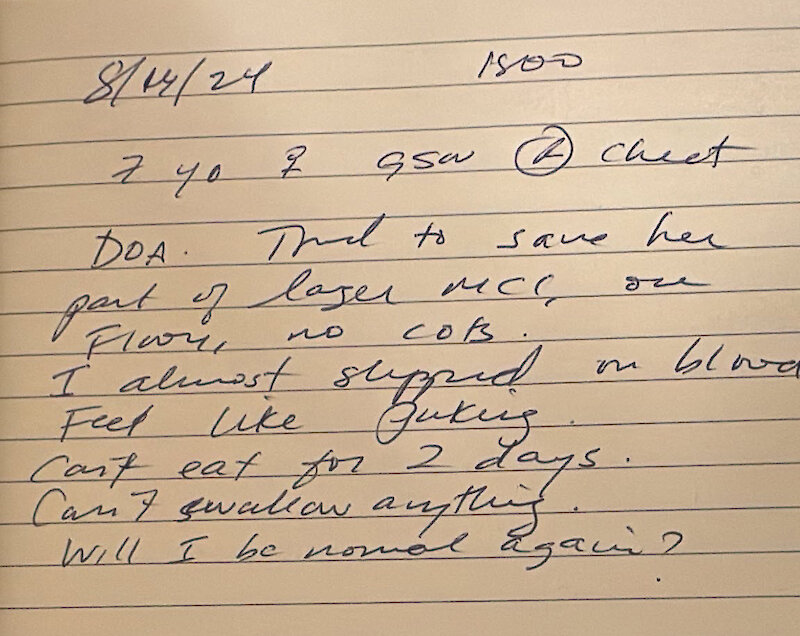 8/14/24 1800
7 yo ♀ GSW Ⓛ chest
DOA. Tried to save her
part of larger MCI, on
Floor, no COTS.
I almost slipped on blood
Feel like puking.
Can't eat for 2 days.
Can't swallow anything.
Will I be normal again?